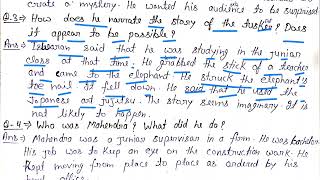 create a mystery. He wanted his audience to be surprised
Q.3→ How does he narrate the story of the tusker? Does
it appear to be possible?
Ans:→ Iswaran said that he was studying in the junior
class at that time. He grabbed the stick of a teacher
and came to the elephant. He struck the elephant's
toe nail. It fell down. He said that he used the
Japanese art jujitsu. The story seems imaginary. It is
not likely to happen.
Q-4→ Who was Mahendra? What did he do?
Ans:→ Mahendra was a junior supervisor in a firm. He was bachelor
His job was to keep an eye on the construction work. He
kept moving from place to place as ordered by his
head office.